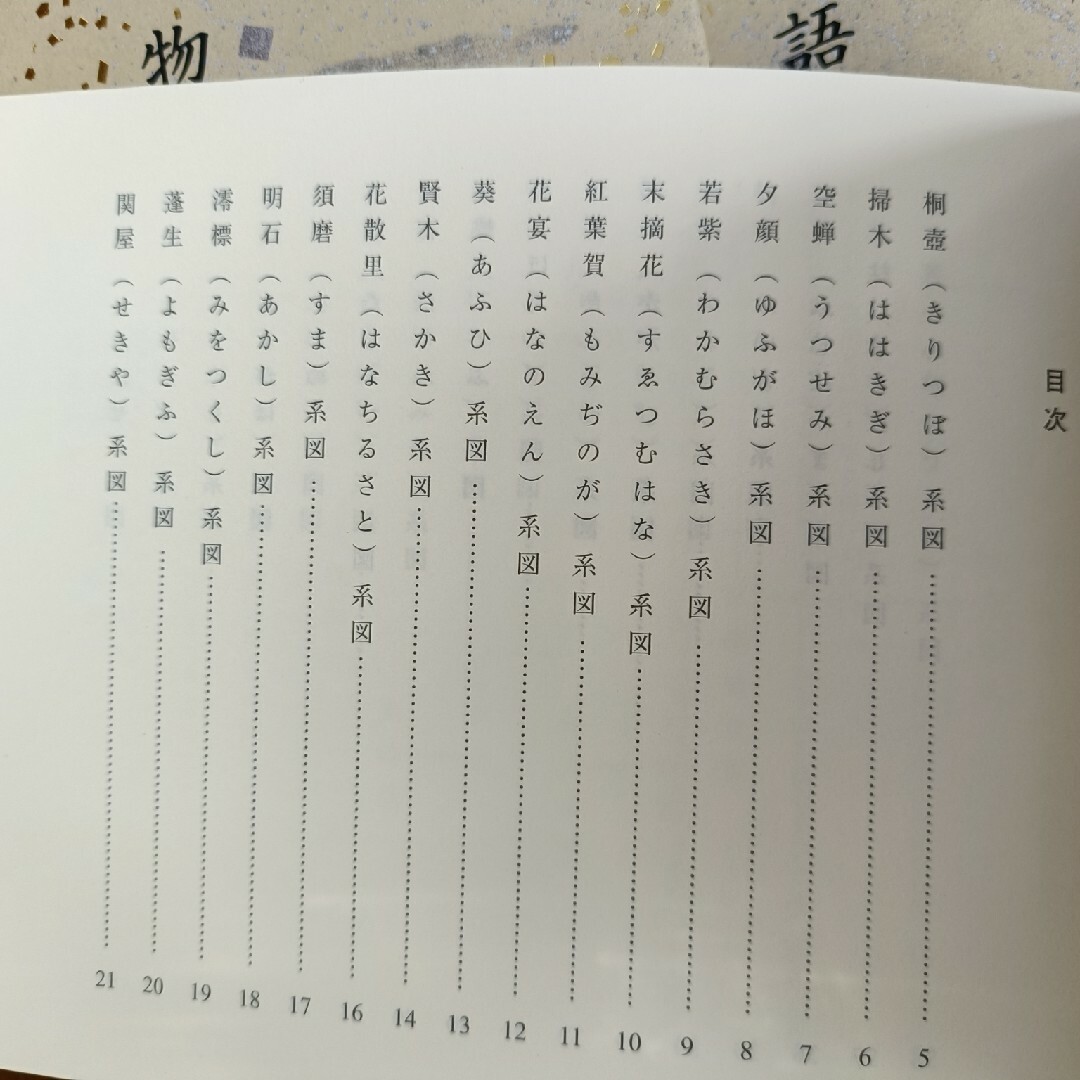 物
語
目次
桐壺（きりつぼ）系図……………………5
掃木（ははきぎ）系図……………………6
空蝉（うつせみ）系図……………………7
夕顔（ゆふがほ）系図……………………8
若紫（わかむらさき）系図……………………9
末摘花（すゑつむはな）系図……………………10
紅葉賀（もみぢのが）系図……………………11
花宴（はなのえん）系図……………………12
葵（あふひ）系図……………………13
賢木（さかき）系図……………………14
花散里（はなちるさと）系図……………………16
須磨（すま）系図……………………17
明石（あかし）系図……………………18
澪標（みをつくし）系図……………………19
蓬生（よもぎふ）系図……………………20
関屋（せきや）系図……………………21